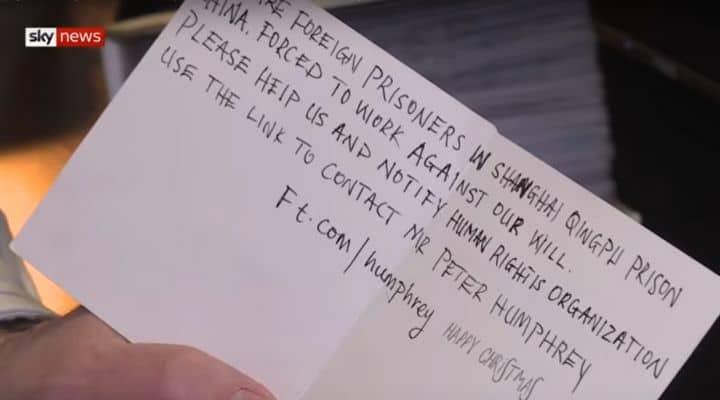 sky news
RE FOREIGN PRISONERS IN SHANGHAI QINGPU PRISON
HINA. FORCED TO WORK AGAINST OUR WILL.
PLEASE HELP US AND NOTIFY HUMAN RIGHTS ORGANIZATION
USE THE LINK TO CONTACT MR PETER HUMPHREY
Ft.com/humphrey HAPPY CHRISTMAS